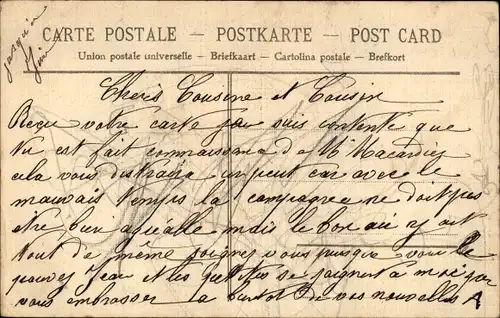 jusqu'a
Juin
CARTE POSTALE — POSTKARTE — POST CARD
Union postale universelle — Briefkaart — Cartolina postale — Brefkort
Cheris Cousine et Cousin
Reçu votre carte suis contente que
tu est fait connaissance de Mr
cela vous un peut car avec le
mauvais temps la campagnee ne doit pas
etre bien mais le bon air y est
tout de même soignez vous puisque vous le
pouvez Jean et les se joignent a moi pour
vous embrasser a bientot de vos nouvelles A